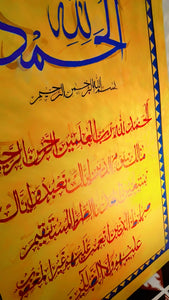 الحمد لله
بسم الله الرحمن الرحيم
الحمد لله رب العلمين الرحمن الرحيم
ملك يوم الدين اياك نعبد واياك
نستعين اهدنا الصراط المستقيم
صراط الذين انعمت عليهم غير المغضوب
عليهم ولا الضالين